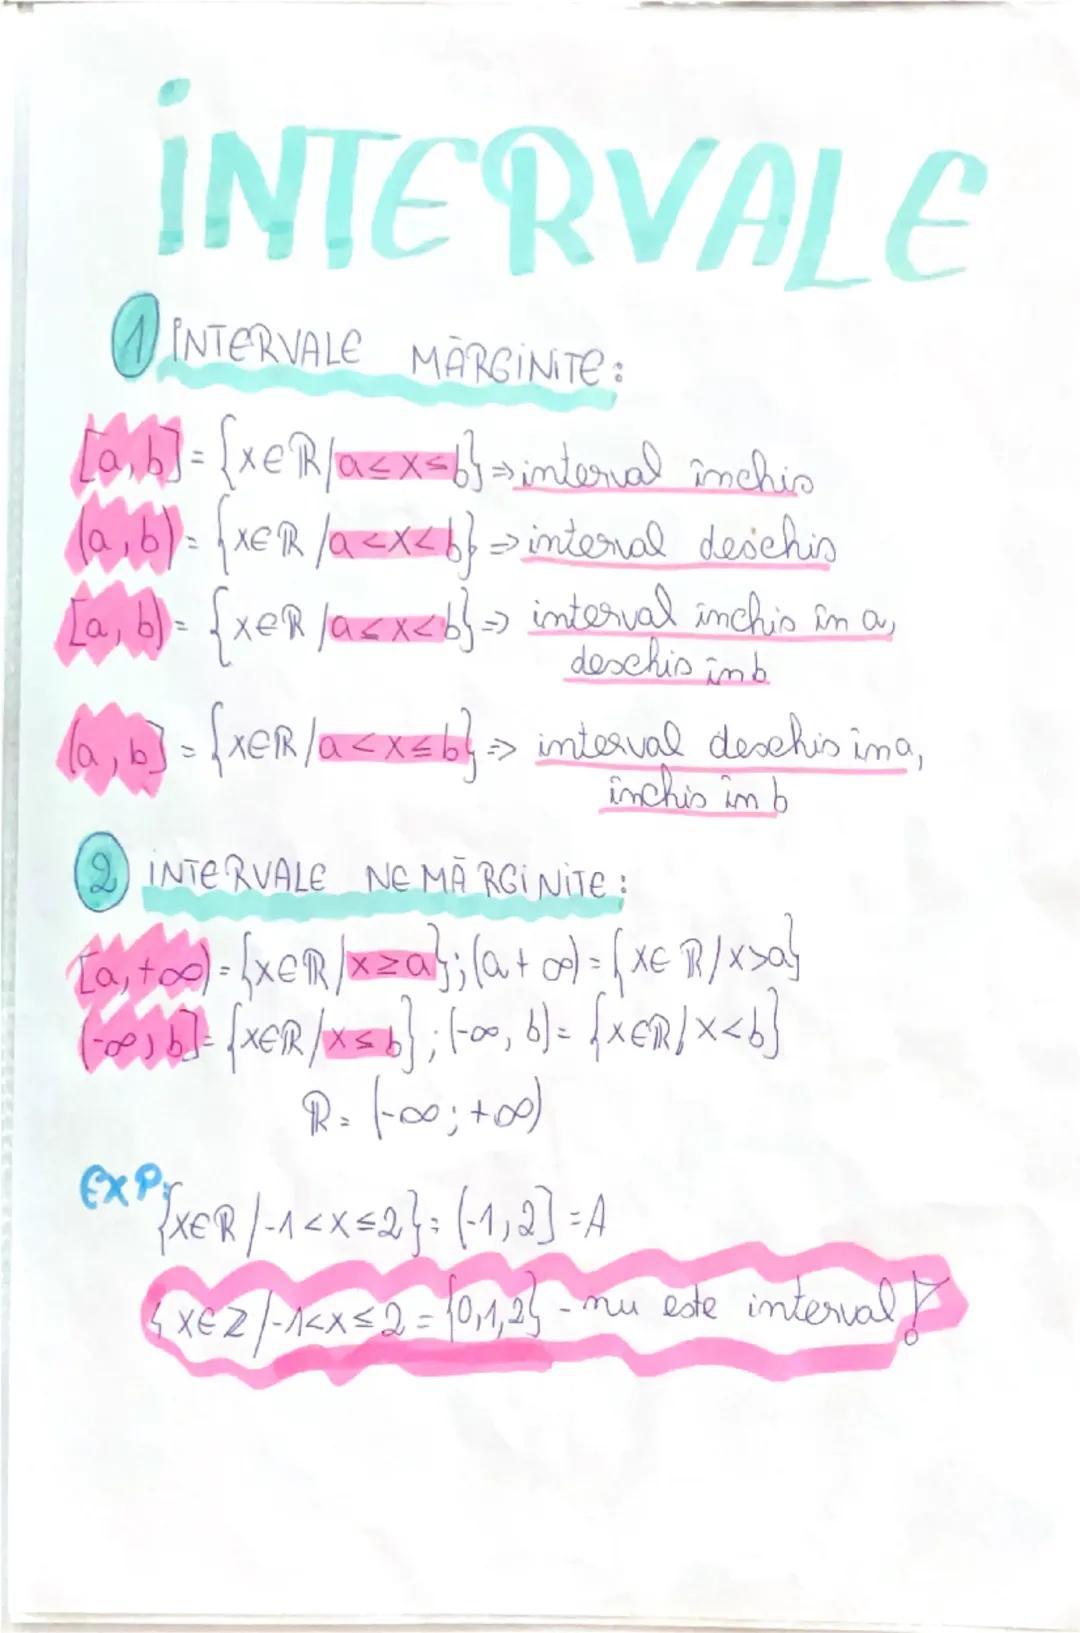 INTERVALE
1 INTERVALE MĂRGINITE:
[a,b] = {x∈ℝ/a≤x≤b} ⇒ interval închis
(a,b) = {x∈ℝ/a<x<b} ⇒ interval deschis
[a,b) = {x∈ℝ/a≤x<b} ⇒ interval închis în a,
deschis în b
(a,b] = {x∈ℝ/a<x≤b} ⇒ interval deschis în a,
închis în b
2 INTERVALE NEMĂRGINITE:
[a,+∞) = {x∈ℝ/x≥a}; (a+∞) = {x∈ℝ/x>a}
(-∞,b] = {x∈ℝ/x≤b}; (-∞,b) = {x∈ℝ/x<b}
ℝ = (-∞;+∞)
EXP:
{x∈ℝ/-1<x≤2} = (-1,2] = A
{x∈Z/-1<x≤2 = {0,1,2} - nu este interval!